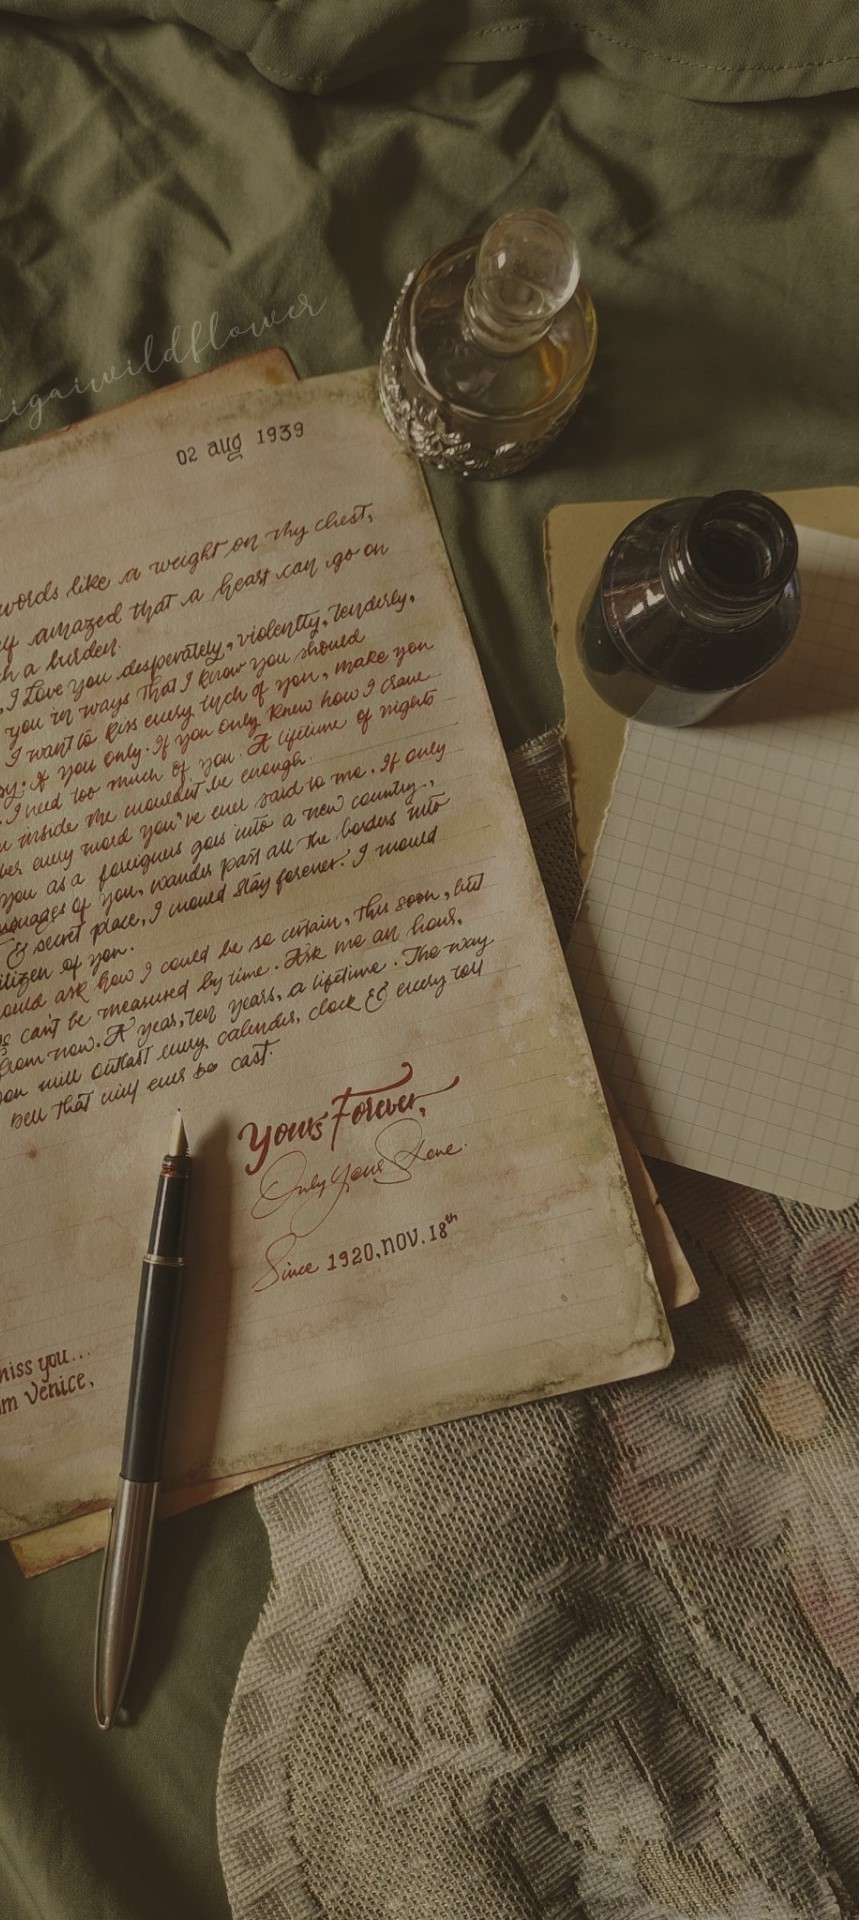 02 aug 1939
words like a weight on my chest,
amazed that a heart can go on
a burden.
I Love you desperately, violently, tenderly,
you in ways that I know you should
I want to kiss every inch of you, make you
If you only. If you only knew how I crave
I need too much of you. A lifetime of nights
inside me wouldn't be enough.
every word you've ever said to me. If only
you as a foreigner goes into a new country,
of you, wander past all the borders into
& secret place, I would stay forever. I would
of you.
ask how I could be so certain, this soon, but
can't be measured by time. Ask me an hour,
from now. A year, ten years, a lifetime. The way
will outlast every calender, clock & every toll
bell that will ever be cast.
Yours Forever,
Only Yours
Since 1920, nov. 18th
miss you...
Venice,